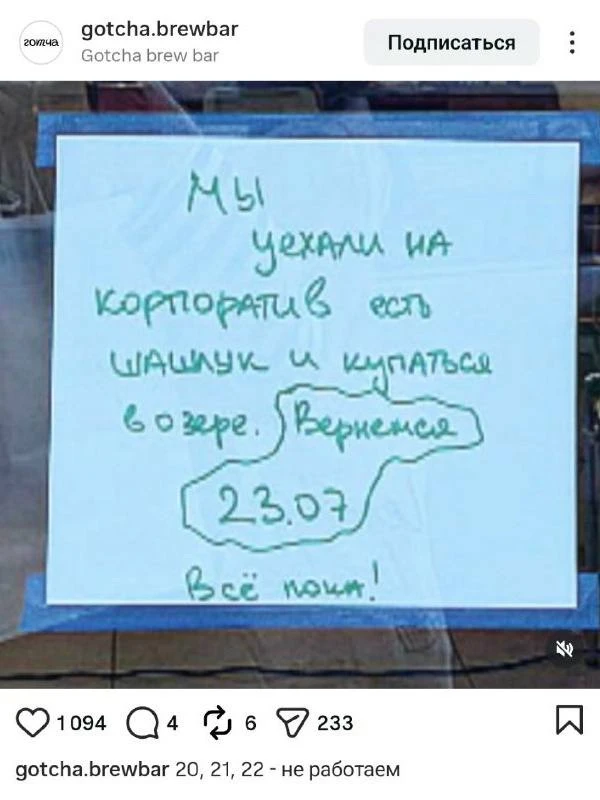 готча
gotcha.brewbar
Gotcha brew bar
Подписаться
Мы
уехали на
корпоратив есть
шашлук и купаться
в озере. Вернемся
23.07
Всё пока!
1 094
4
6
233
gotcha.brewbar 20, 21, 22 - не работаем